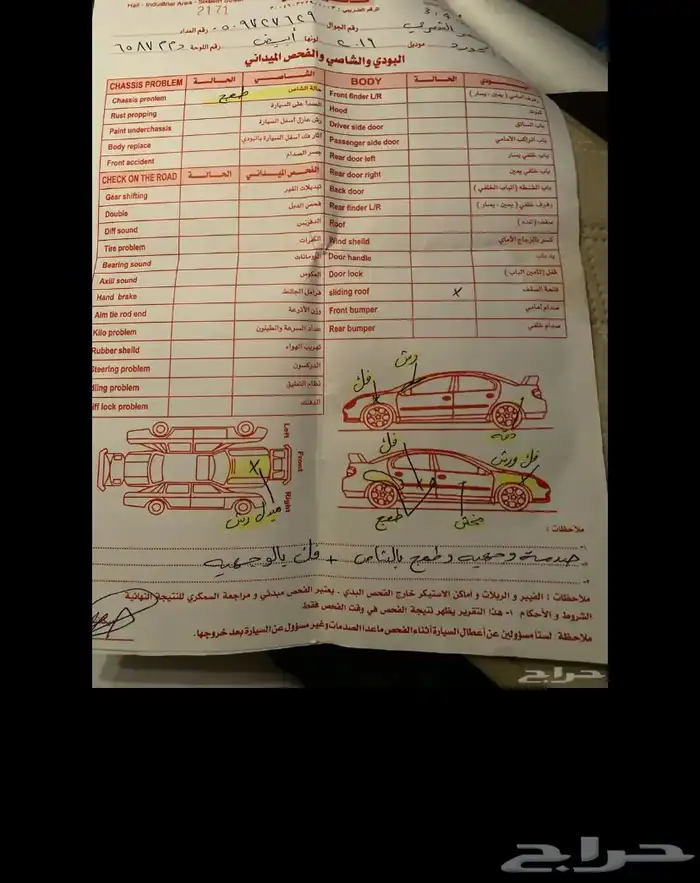 Hail - Industrial Area - Sixteen Street
2171
رقم الجوال ٠٥٠٩٧٢٧٦٢٩ رقم العداد
موديل ٢٠١٩ لونها أبيض رقم اللوحة
البودي والشاصي والفحص الميداني
CHASSIS PROBLEM الحالة الشاصي BODY الحالة بودي
Chassis proolem طعج حالة الشاص Front finder L/R رفرف أمامي ( يمين - يسار )
Rust propping الصدأ على السيارة Hood كبوت
Paint underchassis رش عازل أسفل السيارة Driver side door باب السائق
Body replace آثار فك أسفل السيارة بالبودي Passenger side door باب الراكب الأمامي
Front accident جسر الصدام Rear door left باب خلفي يسار
CHECK ON THE ROAD الحالة الفحص الميداني Rear door right باب خلفي يمين
Gear shifting تبديلات القير Back door باب الشنطه (الباب الخلفي)
Double فحص الدبل Rear finder L/R رفرف خلفي ( يمين - يسار )
Diff sound الدفريس Roof سقف (تنده)
Tire problem الكفرات Wind sheild كسر بالزجاج الأمامي
Bearing sound الرومانات Door handle يد باب
Axill sound العكوس Door lock قفل (تأمين الباب)
Hand brake فرامل الجلنط sliding roof x فتحة السقف
Aim tie rod end وزن الأذرعة Front bumper صدام أمامي
Kilo problem عداد السرعة والطبلون Rear bumper صدام خلفي
Rubber sheild تهريب الهواء
Steering problem الدركسون
dling problem نظام التعليق
iff lock problem الدفلك
رش
فك
Left
Front
Right
فك
فك ورش
x
طعج
مبدل رش
ملاحظات :
١-
صدمة وجهيه وطعج بالشاص + فك بالوجهيه
٢-
ملاحظات : الفيبر و الربلات و أماكن الاستيكر خارج الفحص البدي . يعتبر الفحص مبدئي و مراجعة السمكري للنتيجة النهائية
الشروط و الأحكام ١- هذا التقرير يظهر نتيجة الفحص في وقت الفحص فقط .
ملاحظة : لسنا مسؤولين عن أعطال السيارة أثناء الفحص ماعدا الصدمات وغير مسؤول عن السيارة بعد خروجها .
حراج
حراج